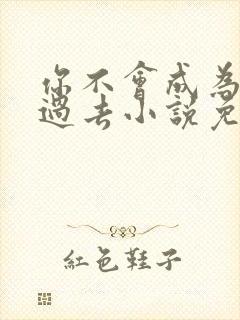 你不會成為
過去小說免
紅色鞋子